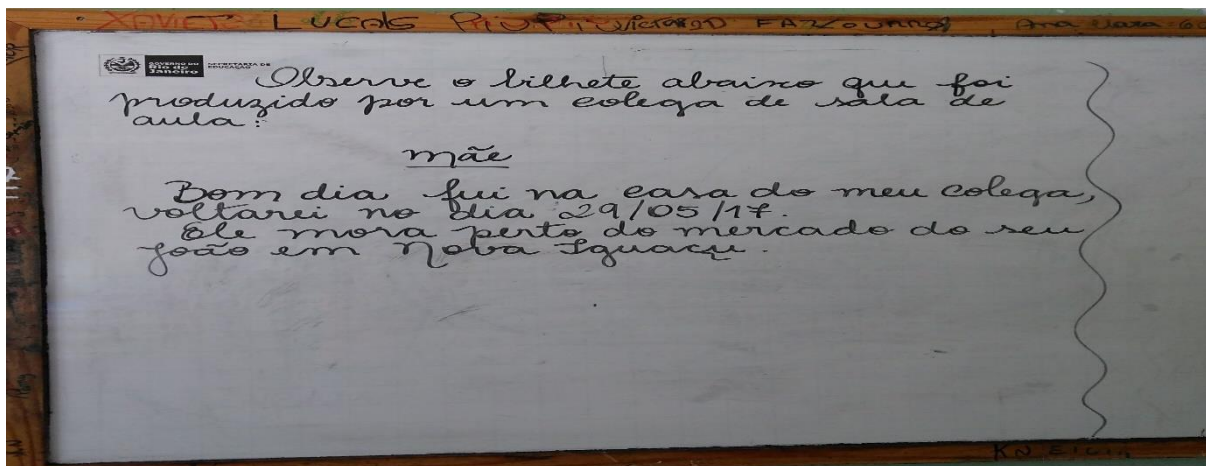 LUCAS
GOVERNO DO
Rio de
Janeiro
SECRETARIA DE
EDUCAÇÃO
Observe o bilhete abaixo que foi
produzido por um colega de sala de
aula:
Mãe
Bom dia fui na casa do meu colega,
voltarei no dia 29/05/17.
Ele mora perto do mercado do seu
João em Nova Iguaçu.